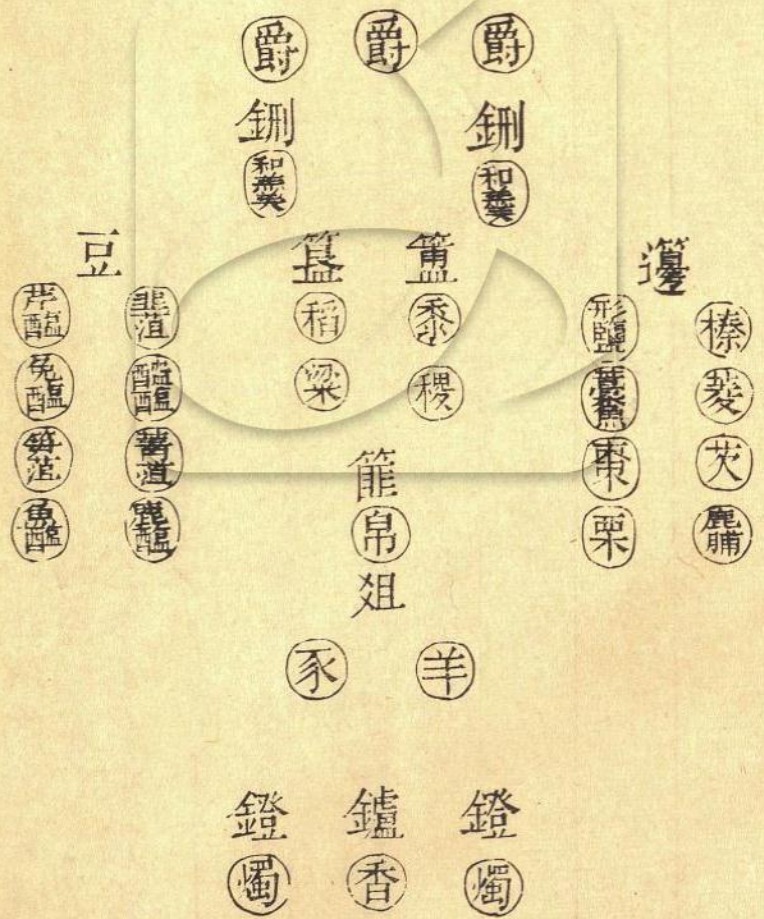 爵 爵 爵
鉶 鉶
和羹 和羹
豆 簋 簠 籩
芹醢 韭菹 稻 黍 形鹽 榛
兔醢 醓醢 粱 稷 魚 菱
筍菹 菁菹 篚 棗 芡
魚醢 鹿醢 帛 栗 鹿脯
爼
豕 羊
鐙 鑪 鐙
燭 香 燭